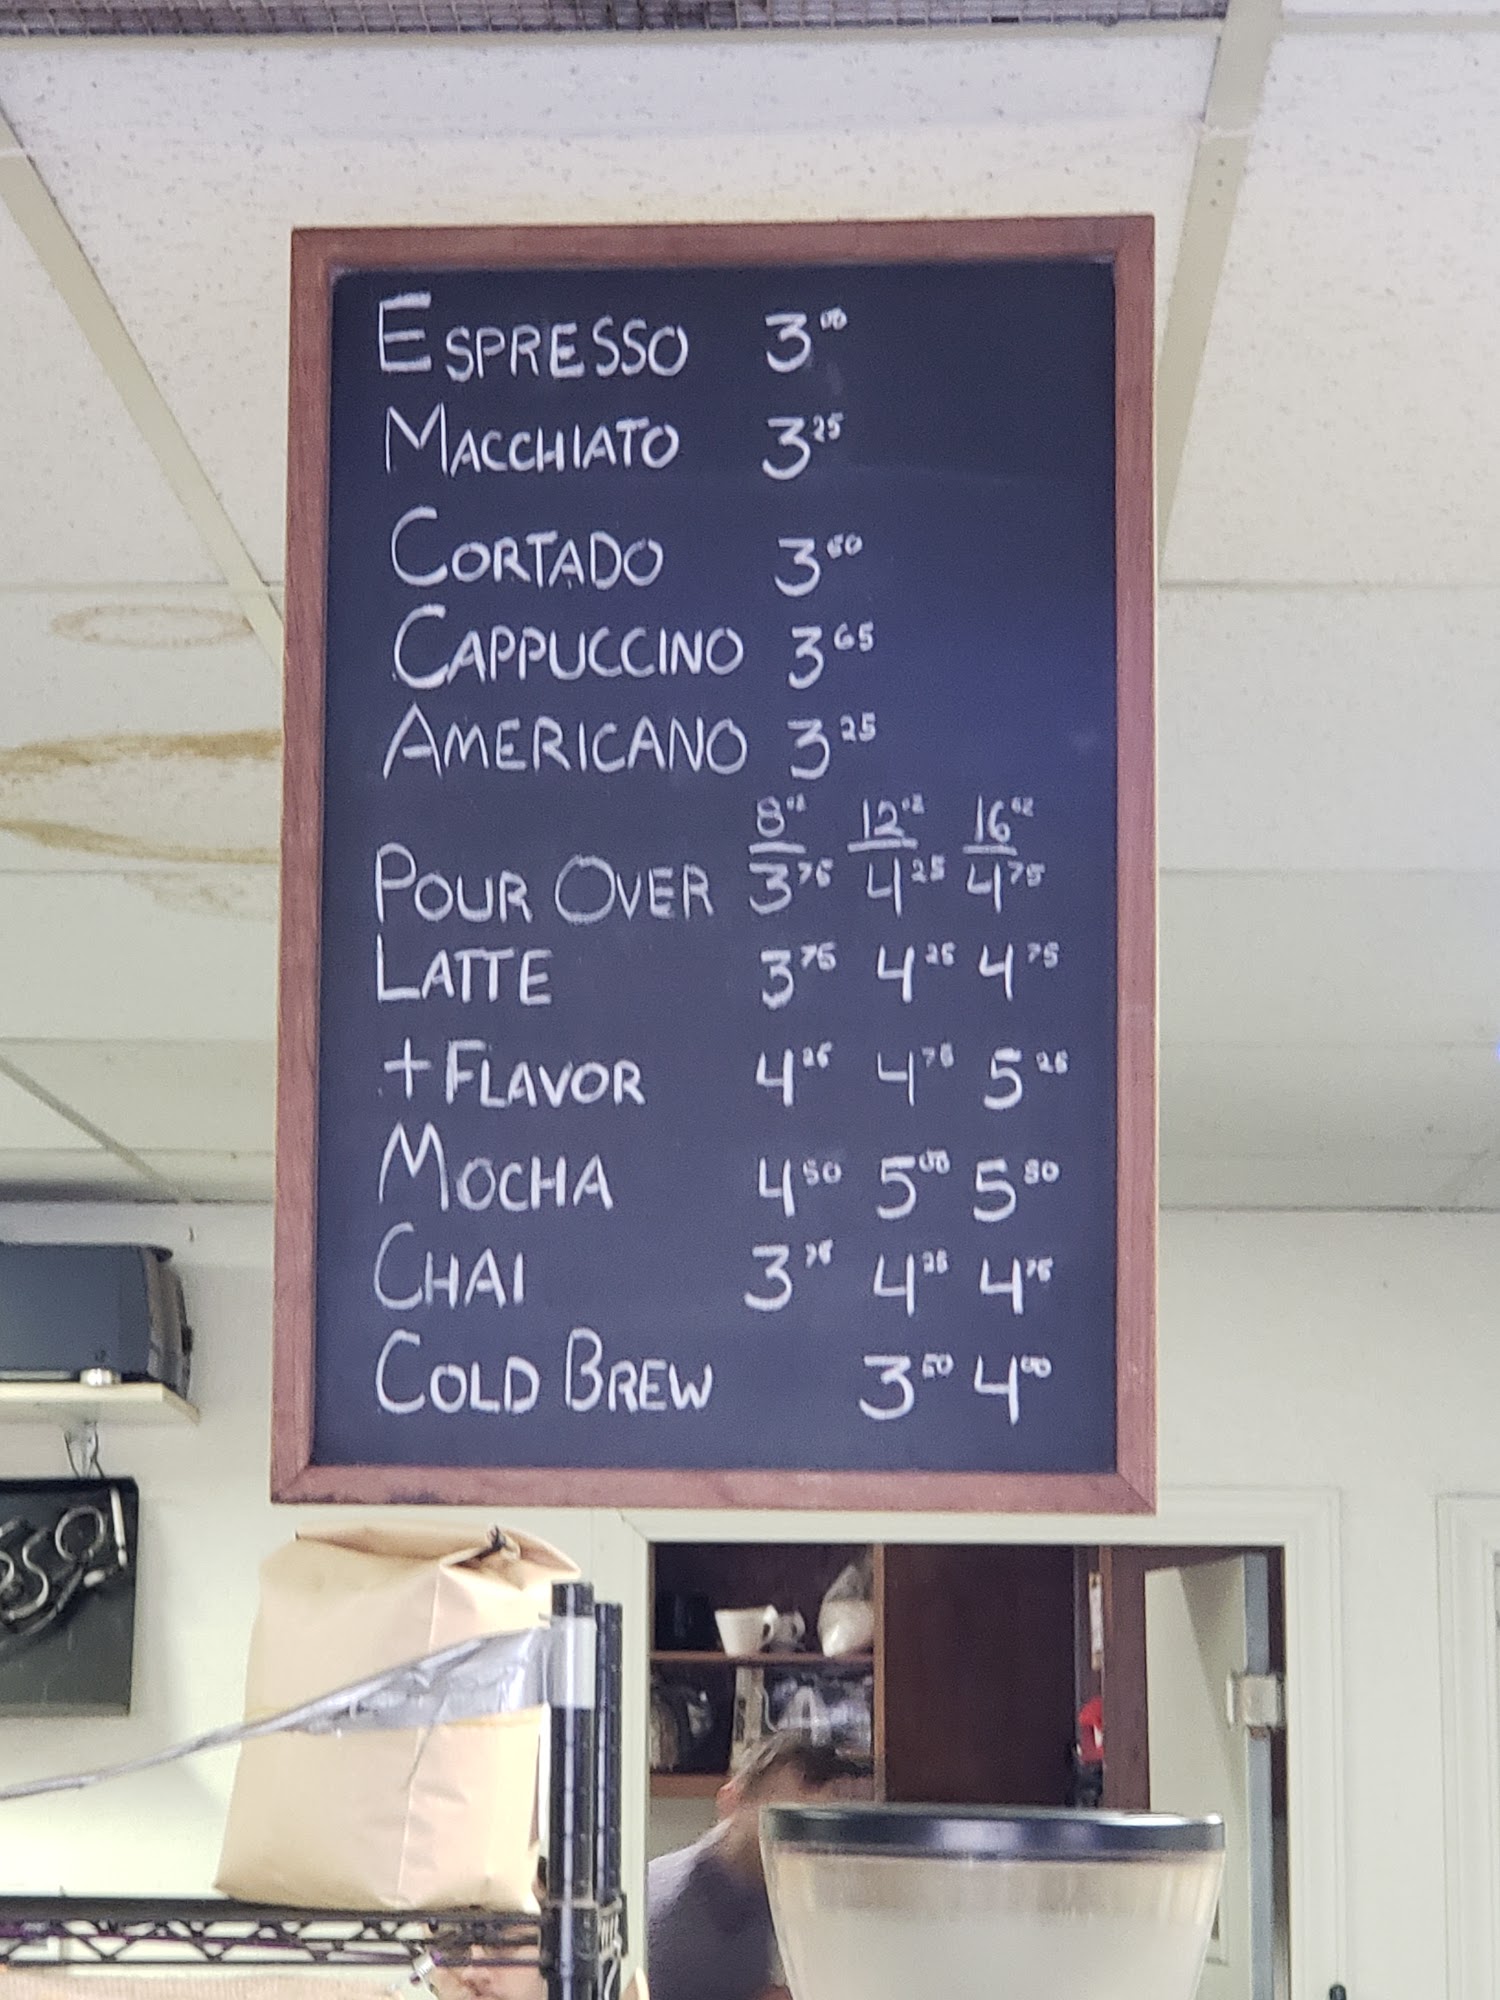 ESPRESSO 3 00
MACCHIATO 3 25
CORTADO 3 50
CAPPUCCINO 3 65
AMERICANO 3 25
8 oz 12 oz 16 oz
POUR OVER 3 75 4 25 4 75
LATTE 3 75 4 25 4 75
+ FLAVOR 4 25 4 75 5 25
MOCHA 4 50 5 00 5 50
CHAI 3 75 4 25 4 75
COLD BREW 3 50 4 00